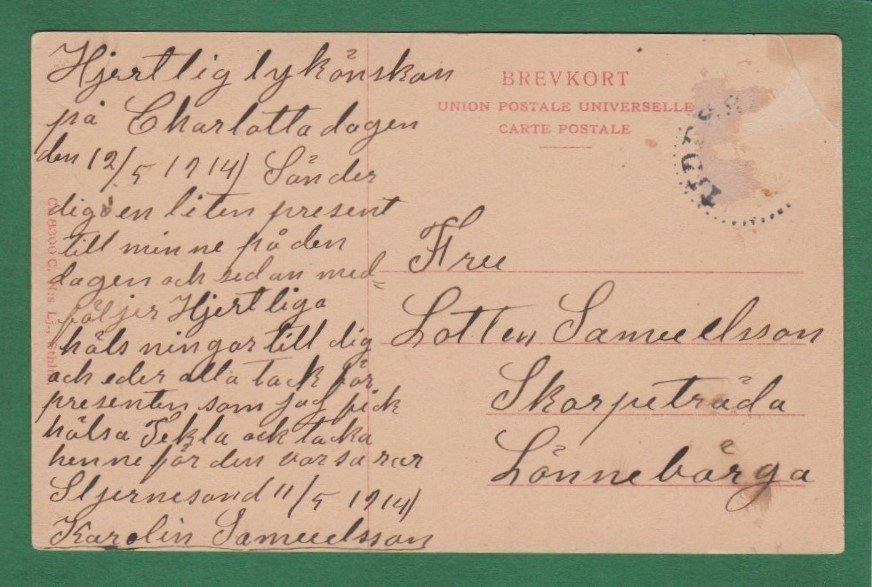 Hjertlig lykönskan
på Charlotta dagen
den 12/5 1914) Sänder
dig en liten present
till minne på den
dagen och sedan med=
följer Hjertliga
hälsningar till dig
och eder alla tack för
presenten som jag fick
hälsa Tekla och tacka
henne för den var så rar
Stjernesand 11/5 1914)
Karolin Samuelsson
BREVKORT
UNION POSTALE UNIVERSELLE
CARTE POSTALE
Fru
Lotten Samuelsson
Skorpeträda
Lönneberga